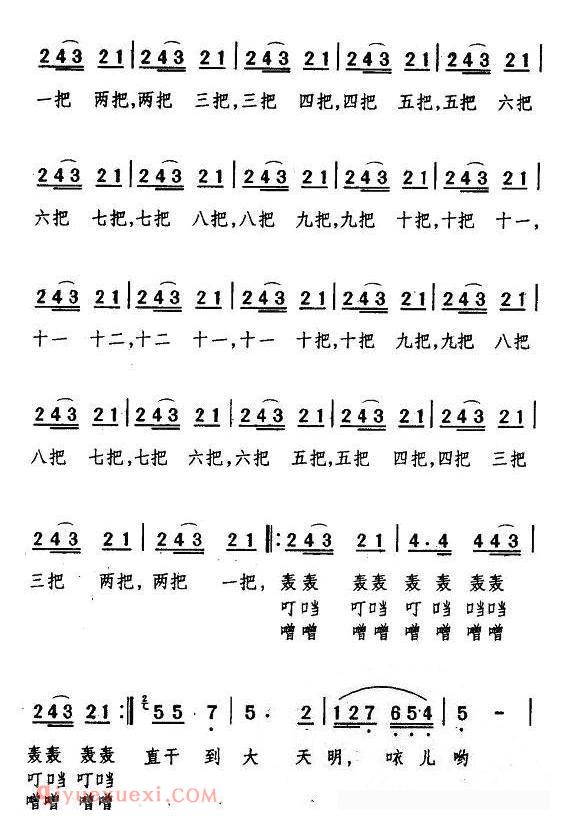 2 4 3 2 1 | 2 4 3 2 1 | 2 4 3 2 1 | 2 4 3 2 1 | 2 4 3 2 1 |
一把 两把,两把 三把,三把 四把,四把 五把,五把 六把
2 4 3 2 1 | 2 4 3 2 1 | 2 4 3 2 1 | 2 4 3 2 1 | 2 4 3 2 1 |
六把 七把,七把 八把,八把 九把,九把 十把,十把 十一,
2 4 3 2 1 | 2 4 3 2 1 | 2 4 3 2 1 | 2 4 3 2 1 | 2 4 3 2 1 |
十一 十二,十二 十一,十一 十把,十把 九把,九把 八把
2 4 3 2 1 | 2 4 3 2 1 | 2 4 3 2 1 | 2 4 3 2 1 | 2 4 3 2 1 |
八把 七把,七把 六把,六把 五把,五把 四把,四把 三把
2 4 3 2 1 | 2 4 3 2 1 ‖: 2 4 3 2 1 | 4 . 4 4 4 3 |
三把 两把,两把 一把, 轰轰 轰轰 轰 轰 轰轰
叮当 叮当 叮 当 当当
噌噌 噌噌 噌 噌 噌噌
2 4 3 2 1 :‖ 5 5 7 | 5 . 2 | 1 2 7 6 5 4 | 5 - |
轰轰 轰轰 直干 到 大 天 明, 咴 儿 哟
叮当 叮当
噌噌 噌噌
qiyuexuexi.com